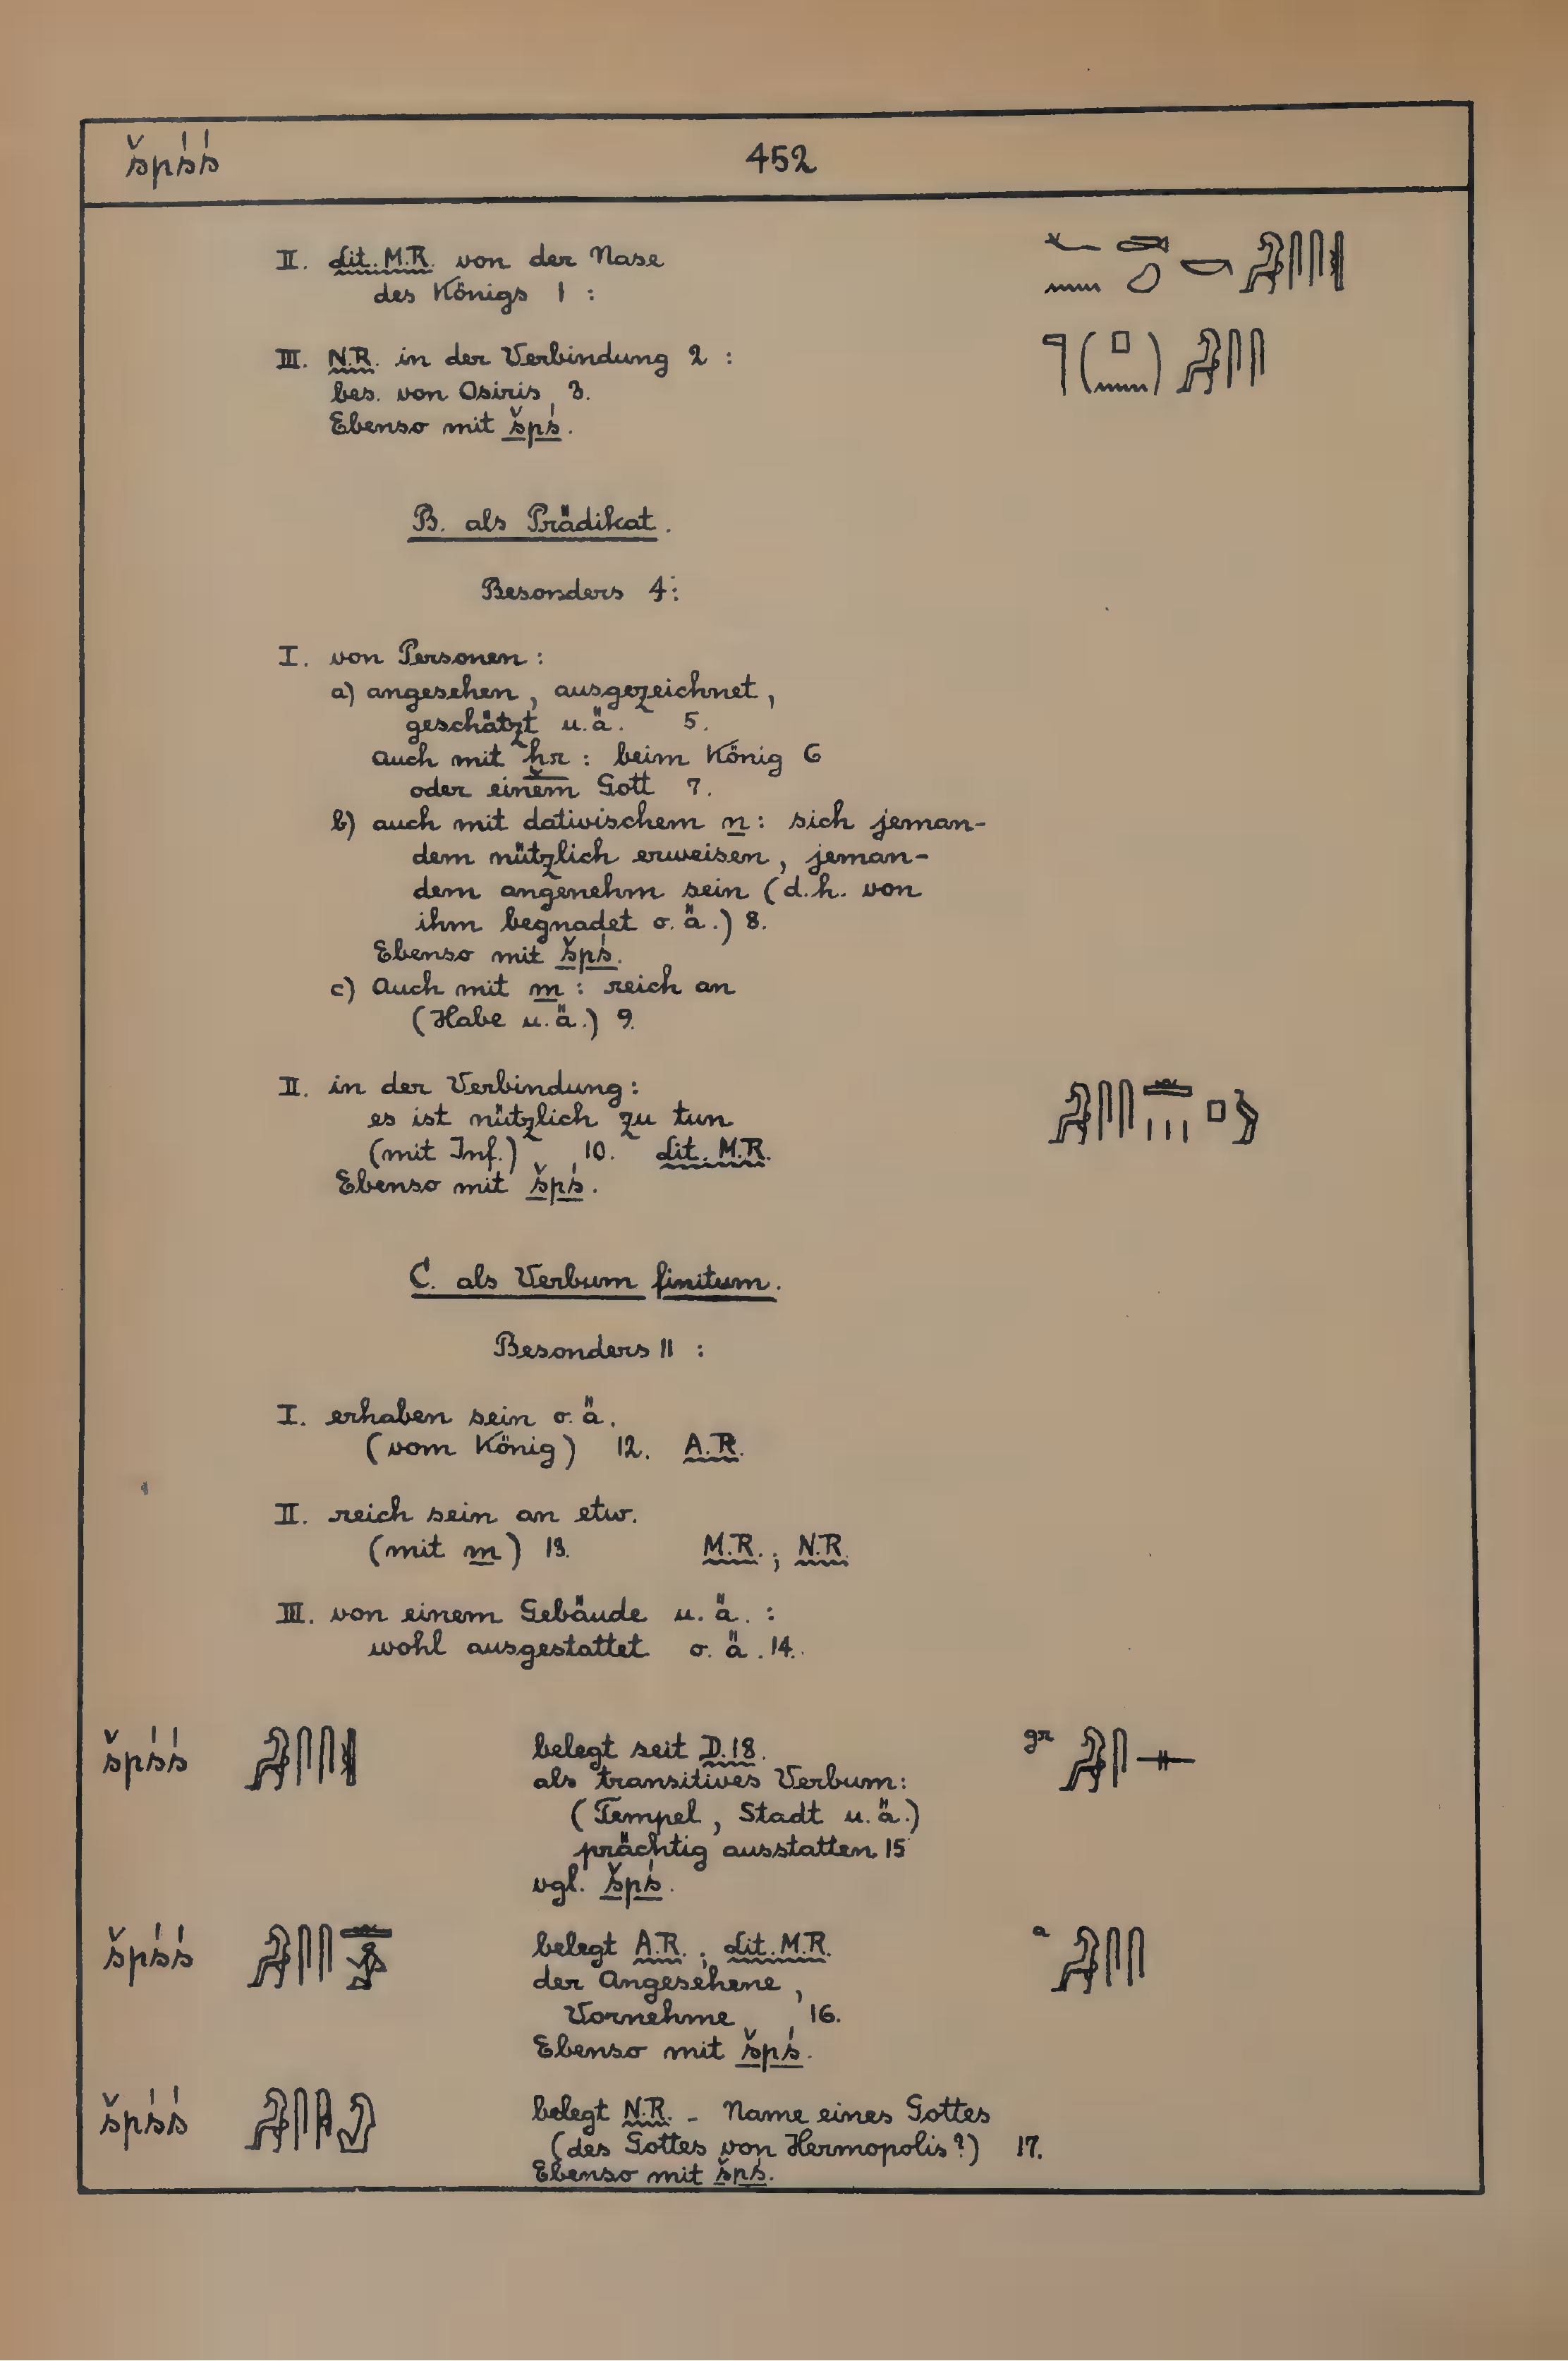 špśś 452
II. Lit. M.R. von der Nase
des Königs 1 :
III. N.R. in der Verbindung 2 :
bes. von Osiris 3.
Ebenso mit špś.
B. als Prädikat.
Besonders 4:
I. von Personen :
a) angesehen, ausgezeichnet,
geschätzt u.ä. 5.
Auch mit ḫr : beim König 6
oder einem Gott 7.
b) auch mit dativischem n : sich jeman-
dem nützlich erweisen, jeman-
dem angenehm sein (d.h. von
ihm begnadet o.ä.) 8.
Ebenso mit špś.
c) Auch mit m : reich an
(Habe u.ä.) 9.
II. in der Verbindung :
es ist nützlich zu tun
(mit Inf.) 10. Lit. M.R.
Ebenso mit špś.
C. als Verbum finitum.
Besonders 11 :
I. erhaben sein o.ä.
(vom König) 12. A.R.
II. reich sein an etw.
(mit m) 13. M.R.; N.R.
III. von einem Gebäude u.ä. :
wohl ausgestattet o.ä. 14.
špśś belegt seit D.18. gr
als transitives Verbum:
(Tempel, Stadt u.ä.)
prächtig ausstatten 15
vgl. špś.
špśś belegt A.R.; Lit. M.R. a
der Angesehene,
Vornehme 16.
Ebenso mit špś.
špśś belegt N.R. - Name eines Gottes
(des Gottes von Hermopolis?) 17.
Ebenso mit špś.